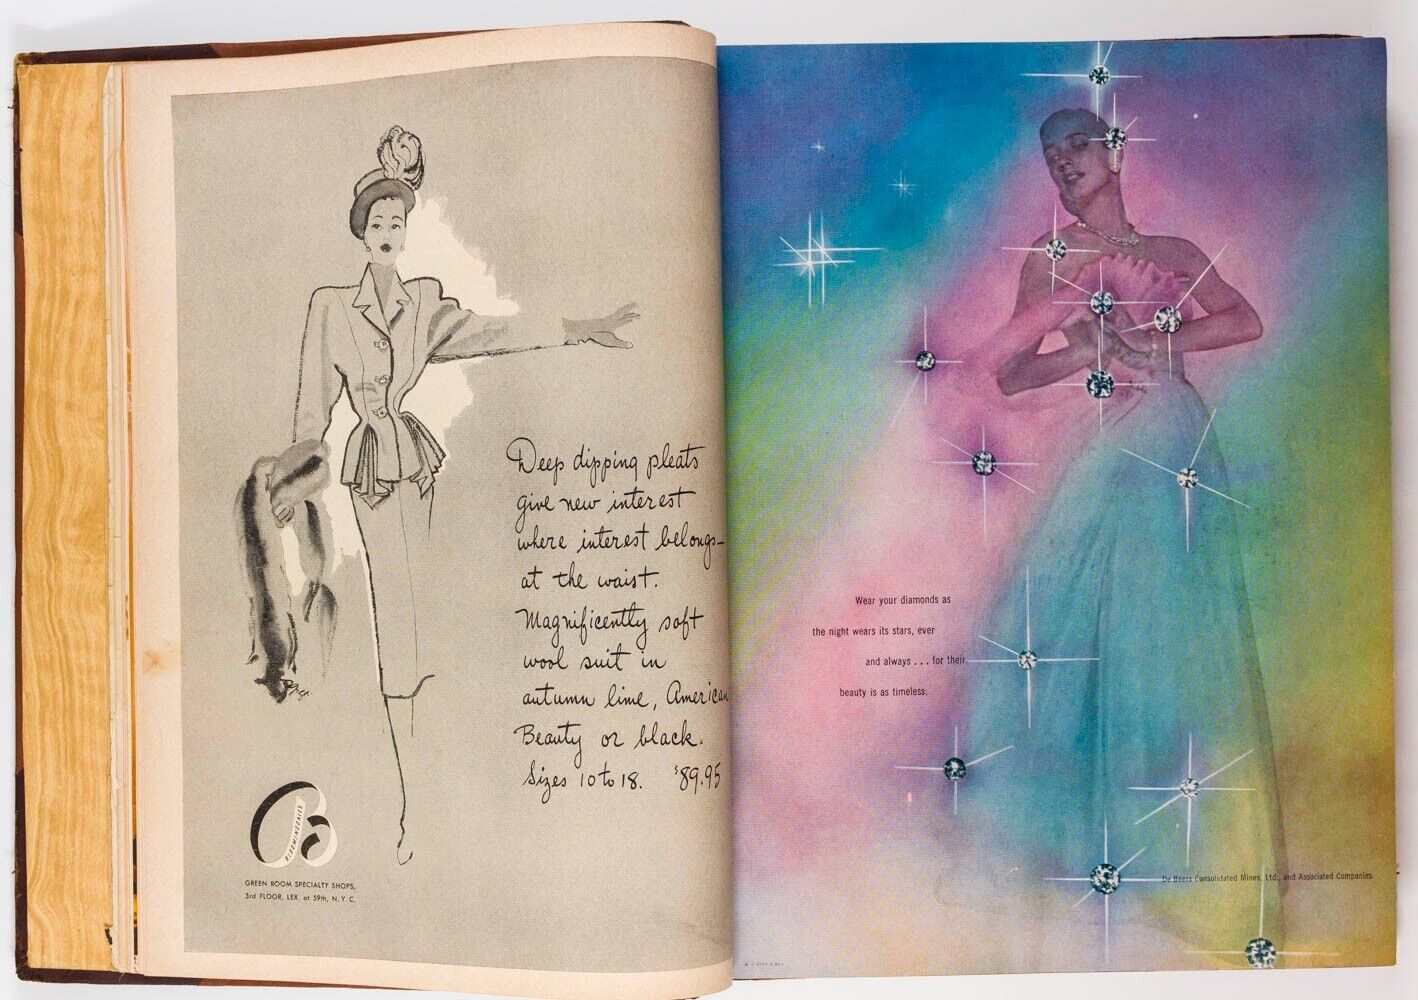 Deep dipping pleats
give new interest
where interest belongs—
at the waist.
Magnificently soft
wool suit in
autumn lime, American
Beauty or black.
Sizes 10 to 18. $89.95
BLOOMINGDALE'S
GREEN ROOM SPECIALTY SHOPS,
3rd FLOOR, LEX. at 59th, N. Y. C.
Wear your diamonds as
the night wears its stars, ever
and always . . . for their
beauty is as timeless.
De Beers Consolidated Mines, Ltd., and Associated Companies